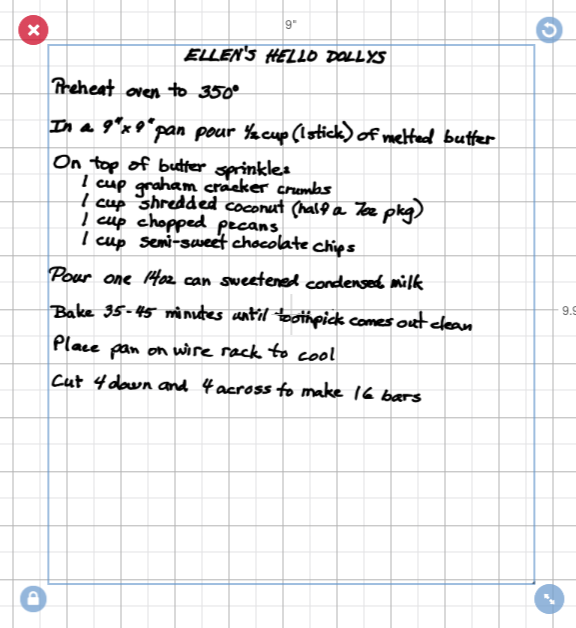 9"
ELLEN'S HELLO DOLLYS
Preheat oven to 350°
In a 9"x9" pan pour 1/2 cup (1 stick) of melted butter
On top of butter sprinkle:
1 cup graham cracker crumbs
1 cup shredded coconut (half a 7oz pkg)
1 cup chopped pecans
1 cup semi-sweet chocolate chips
Pour one 14oz can sweetened condensed milk
Bake 35-45 minutes until toothpick comes out clean
9.9
Place pan on wire rack to cool
Cut 4 down and 4 across to make 16 bars